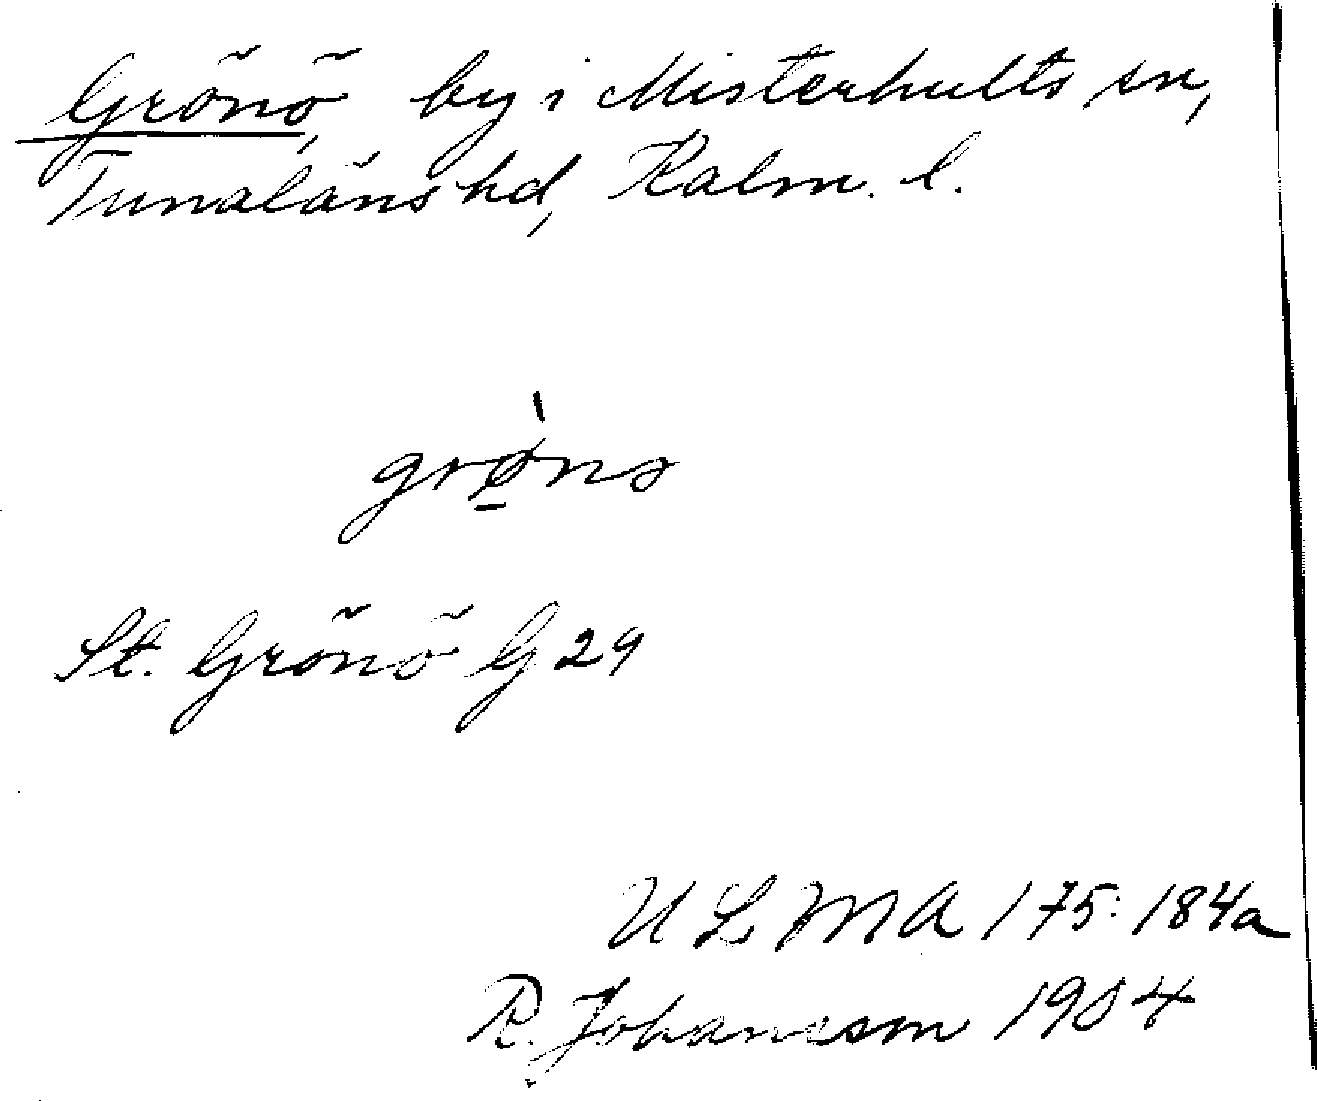 Grönö, by i Misterhults sn,
Tunaläns hd, Kalm. l.
grø̱̀ns
St. Grönö G 29
ULMA 175:184a
R. Johansson 1904